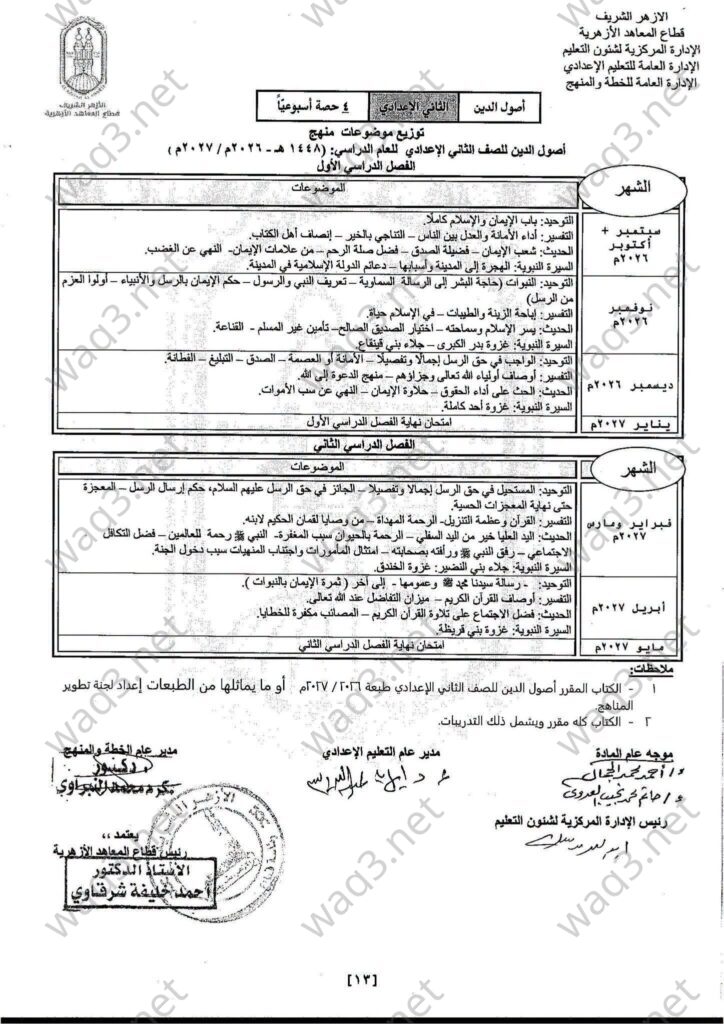 الازهر الشريف
قطاع المعاهد الأزهرية
الإدارة المركزية لشئون التعليم
الإدارة العامة للتعليم الإعدادي
الإدارة العامة للخطة والمنهج
الأزهر الشريف
قطاع المعاهد الأزهرية
أصول الدين
الثاني الإعدادي
٤ حصة أسبوعيًا
توزيع موضوعات منهج
أصول الدين للصف الثاني الإعدادي للعام الدراسي: (١٤٤٨ هـ - ٢٠٢٦م / ٢٠٢٧م )
الفصل الدراسي الأول
الشهر
الموضوعات
سبتمبر + أكتوبر ٢٠٢٦م
التوحيد: باب الإيمان والإسلام كاملًا.
التفسير: أداء الأمانة والعدل بين الناس – التناجي بالخير – إنصاف أهل الكتاب.
الحديث: شعب الإيمان – فضيلة الصدق – فضل صلة الرحم – من علامات الإيمان- النهي عن الغضب.
السيرة النبوية: الهجرة إلى المدينة وأسبابها – دعائم الدولة الإسلامية في المدينة.
نوفمبر ٢٠٢٦م
التوحيد: النبوات (حاجة البشر إلى الرسالة السماوية – تعريف النبي والرسول – حكم الإيمان بالرسل والأنبياء – أولوا العزم
من الرسل)
التفسير: إباحة الزينة والطيبات – في الإسلام حياة.
الحديث: يسر الإسلام وسماحته – اختيار الصديق الصالح– تأمين غير المسلم - القناعة.
السيرة النبوية: غزوة بدر الكبرى – جلاء بني قينقاع.
ديسمبر ٢٠٢٦م
التوحيد: الواجب في حق الرسل إجمالًا وتفصيلًا – الأمانة أو العصمة – الصدق – التبليغ – الفطانة.
التفسير: أوصاف أولياء الله تعالى وجزاؤهم – منهج الدعوة إلى الله.
الحديث: الحث على أداء الحقوق – حلاوة الإيمان – النهي عن سب الأموات.
السيرة النبوية: غزوة أحد كاملة.
يناير ٢٠٢٧م
امتحان نهاية الفصل الدراسي الأول
الفصل الدراسي الثاني
الشهر
الموضوعات
فبراير ومارس ٢٠٢٧م
التوحيد: المستحيل في حق الرسل إجمالًا وتفصيلًا – الجائز في حق الرسل عليهم السلام، حكم إرسال الرسل – المعجزة
حتى نهاية المعجزات الحسية.
التفسير: القرآن وعظمة التنزيل- الرحمة المهداة – من وصايا لقمان الحكيم لابنه.
الحديث: اليد العليا خير من اليد السفلى – الرحمة بالحيوان سبب المغفرة- النبي ﷺ رحمة للعالمين – فضل التكافل
الاجتماعي – رفق النبي ﷺ ورأفته بصحابته – امتثال المأمورات واجتناب المنهيات سبب دخول الجنة.
السيرة النبوية: جلاء بني النضير: غزوة الخندق.
أبريل ٢٠٢٧م
التوحيد: - رسالة سيدنا محمد ﷺ وعمومها - إلى آخر ( ثمرة الإيمان بالنبوات ).
التفسير: أوصاف القرآن الكريم – ميزان التفاضل عند الله تعالى.
الحديث: فضل الاجتماع على تلاوة القرآن الكريم – المصائب مكفرة للخطايا.
السيرة النبوية: غزوة بني قريظة.
مايو ٢٠٢٧م
امتحان نهاية الفصل الدراسي الثاني
ملاحظات:
١ - الكتاب المقرر أصول الدين للصف الثاني الإعدادي طبعة ٢٠٢٦ / ٢٠٢٧م أو ما يماثلها من الطبعات إعداد لجنة تطوير
المناهج.
٢ - الكتاب كله مقرر ويشمل ذلك التدريبات.
موجه عام المادة
مدير عام التعليم الإعدادي
مدير عام الخطة والمنهج
دكتور
أ/ أحمد محمد الجمال
رئيس الإدارة المركزية لشئون التعليم
يعتمد ،،
رئيس قطاع المعاهد الأزهرية
الأستاذ الدكتور
أحمد خليفة شرقاوي
[١٣]
waq3.net